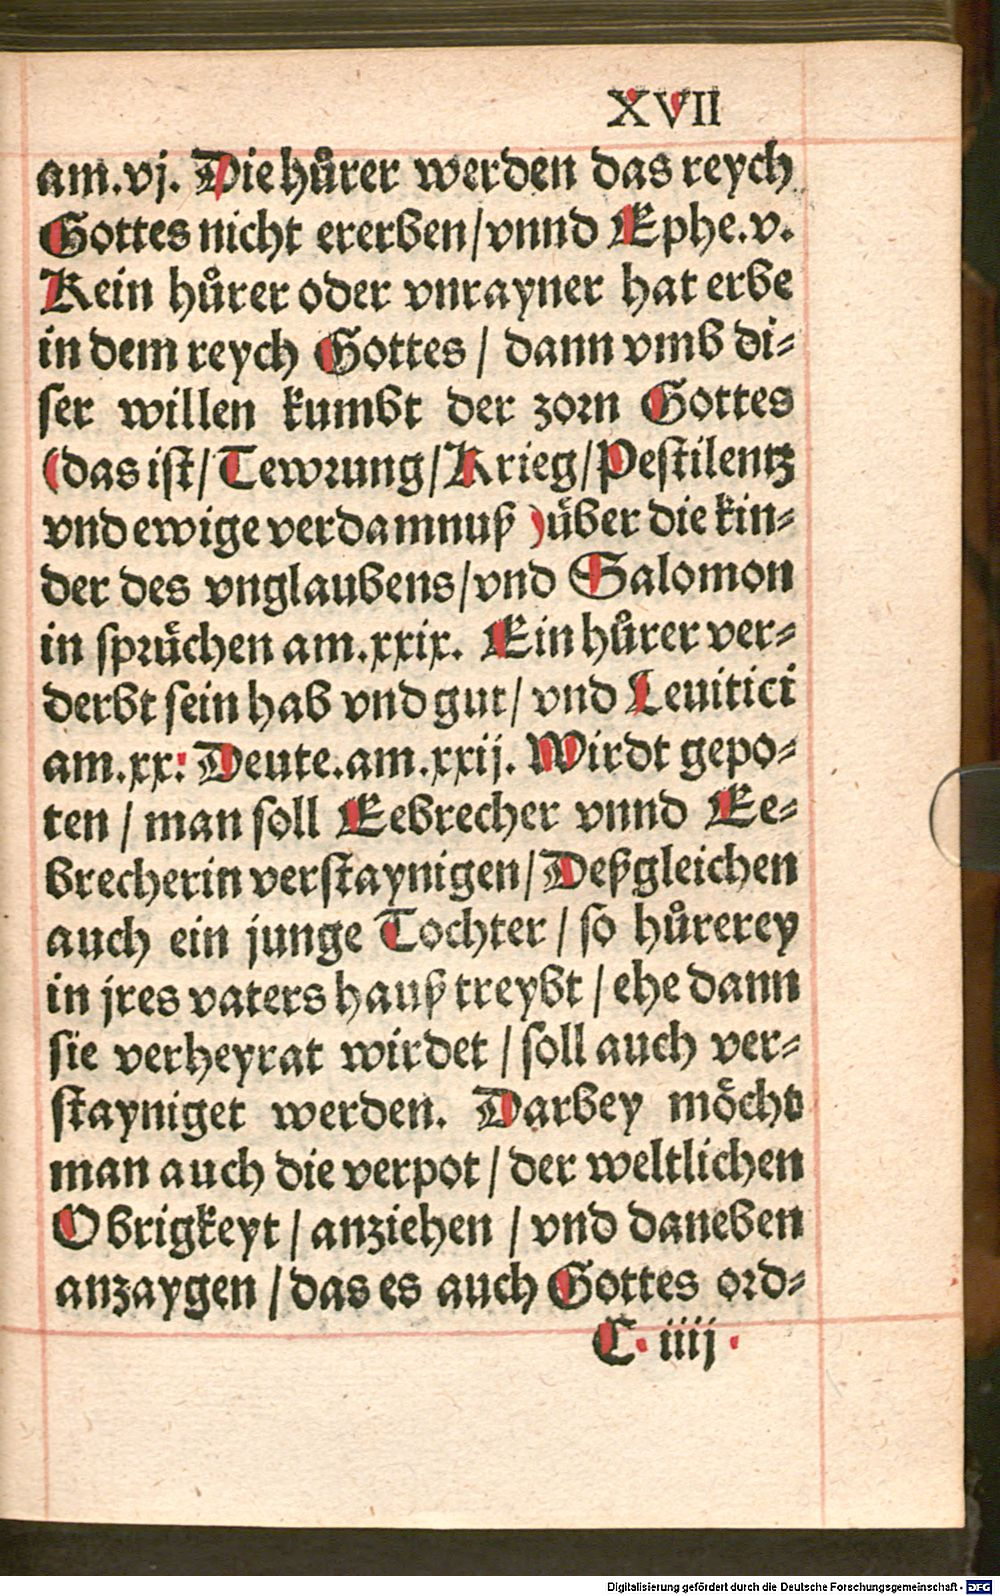 XVII
am.vj. Die hůrer werden das reych
Gottes nicht ererben/vnnd Ephe.v.
Kein hůrer oder vnrayner hat erbe
in dem reych Gottes / dann vmb di-
ser willen kumbt der zorn Gottes
(das ist/ Tewrung/Krieg/Pestilentz
vnd ewige verdamnuß )uͤber die kin-
der des vnglaubens/vnd Salomon
in spruͤchen am.xxix. Ein hůrer ver-
derbt sein hab vnd gut/ vnd Leuitici
am.xx: Deute.am.xxij. Wirdt gepo-
ten / man soll Eebrecher vnnd Ee-
brecherin verstaynigen/Deßgleichen
auch ein junge Tochter / so hůrerey
in jres vaters hauß treybt / ehe dann
sie verheyrat wirdet / soll auch ver-
stayniget werden. Darbey moͤcht
man auch die verpot / der weltlichen
Obrigkeyt / anziehen / vnd daneben
anzaygen / das es auch Gottes ord-
C. iiij.
Digitalisierung gefördert durch die Deutsche Forschungsgemeinschaft - DFG